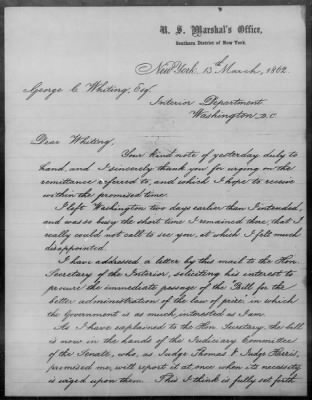 U. S. Marshal's Office,
Southern District of New York.
New York. 13th March, 1862
George C. Whiting, Esq.
Interior Department
Washington D.C.
Dear Whiting,
Your kind note of yesterday duly to
hand, and I sincerely thank you for urging on the
remittance referred to, and which I hope to receive
within the promised time.
I left Washington two days earlier than I intended,
and was so busy the short time I remained there, that I
really could not call to see you, at which I felt much
disappointed.
I have addressed a letter by this mail to the Hon.
Secretary of the Interior, soliciting his interest to
procure the immediate passage of the "Bill for the
better administration of the law of prize" in which
the Government is as much interested as I am.
As I have explained to the Hon. Secretary, the bill
is now in the hands of the Judiciary Committee
of the Senate, who, as Judge Thomas & Judge Harris,
promised me, will report it at once, when its necessity
is urged upon them. This I think is fully set forth